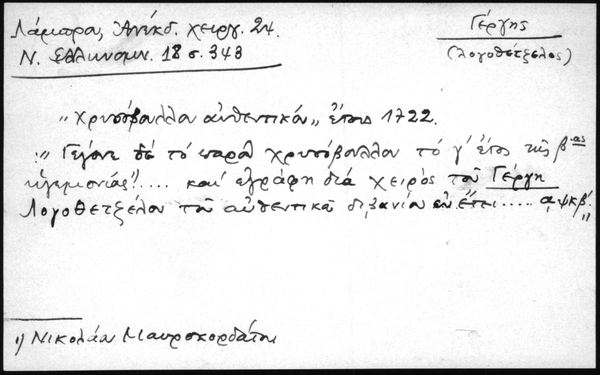 Λάμπρου, Ἀνέκδ. χειργ. 24.
Ν. Ἑλληνομν. 18 σ. 343
Γέργης
(λογοθέτζελος)
"Χρυσόβουλλον αὐθεντικόν" ἔτους 1722.
"Γέγονε δὲ τὸ παρὸν χρυσόβουλλον τὸ γ' ἔτος τῆς β.ας
ἡγεμονίας¹⁾.... καὶ ἐγράφη διὰ χειρὸς τοῦ Γέργη
Λογοθετζέλου τοῦ αὐθεντικοῦ διβανίου ἐν ἔτει..... ͵αψκβ'."
1) Νικολάου Μαυροκορδάτου